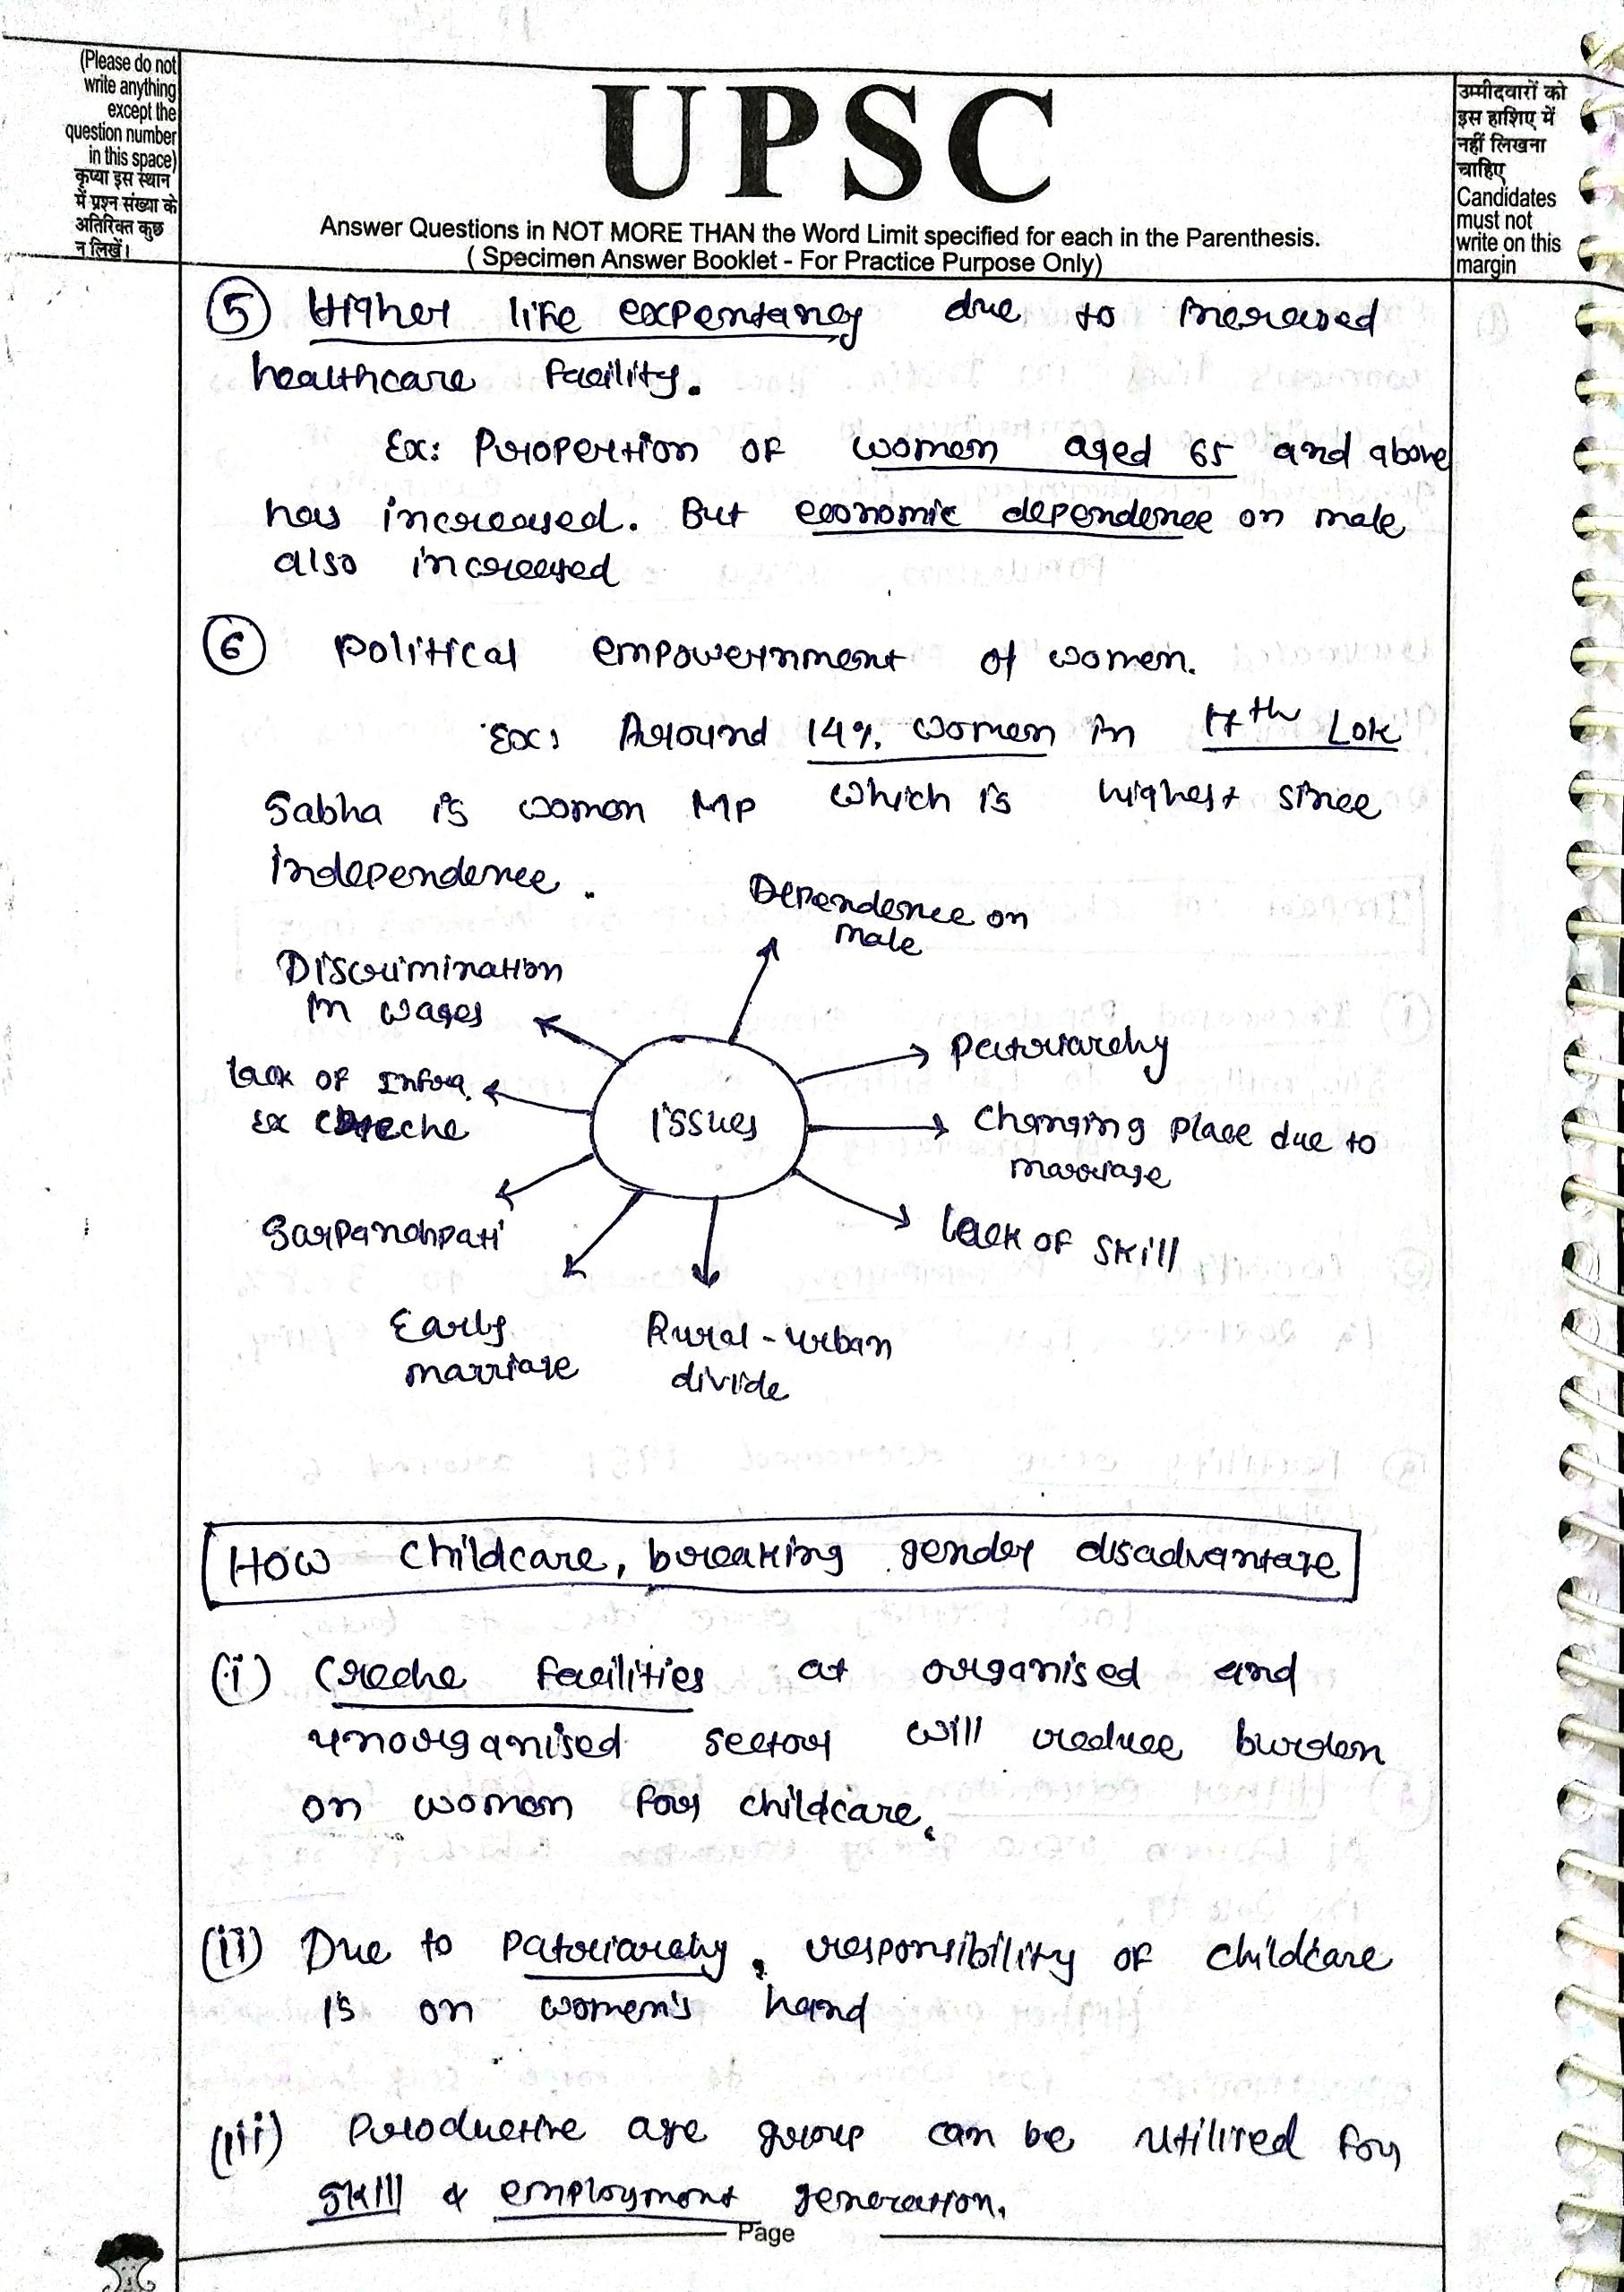 (Please do not
write anything
except the
question number
in this space)
कृप्या इस स्थान
में प्रश्न संख्या के
अतिरिक्त कुछ
न लिखें।
UPSC
Answer Questions in NOT MORE THAN the Word Limit specified for each in the Parenthesis.
( Specimen Answer Booklet - For Practice Purpose Only)
उम्मीदवारों को
इस हाशिए में
नहीं लिखना
चाहिए
Candidates
must not
write on this
margin
5 Higher life expentancy due to increased
healthcare facility.
Ex: Propertion of women aged 65 and above
has increased. But economic dependence on male
also increased
6 Political empowernment of women.
Ex: Around 14% women in 17th Lok
Sabha is women MP which is highest since
independence.
Dependence on
male
Discrimination
in wages
Patriarchy
Lack of Infra.
Ex creche
issues
Changing place due to
marriage
Sarpanchpati
Lack of skill
Early
marriage
Rural-urban
divide
How childcare, breaking gender disadvantage
(i) Creche facilities at organised and
unorganised sector will reduce burden
on women for childcare.
(ii) Due to Patriarchy, responsibility of childcare
is on women's hand
(iii) Productive age group can be utilised for
skill & employment generation.
Page